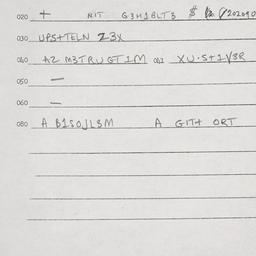 020 + NIT G3H1BLT3 $
030 UPS+TELN Z3X
040 AZ M3TRUGT1M 041 XU·S+1V3R
050 —
060 —
080 A B1SOJL3M A GIT+ ORT